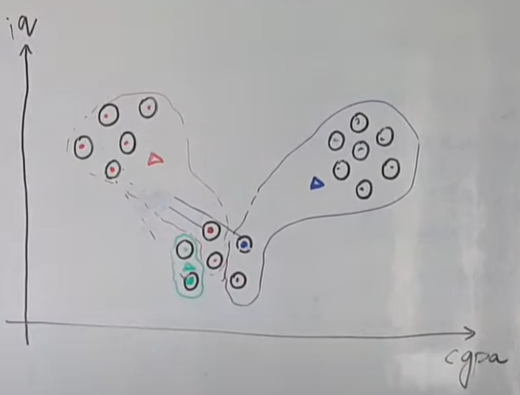 iq
cgpa